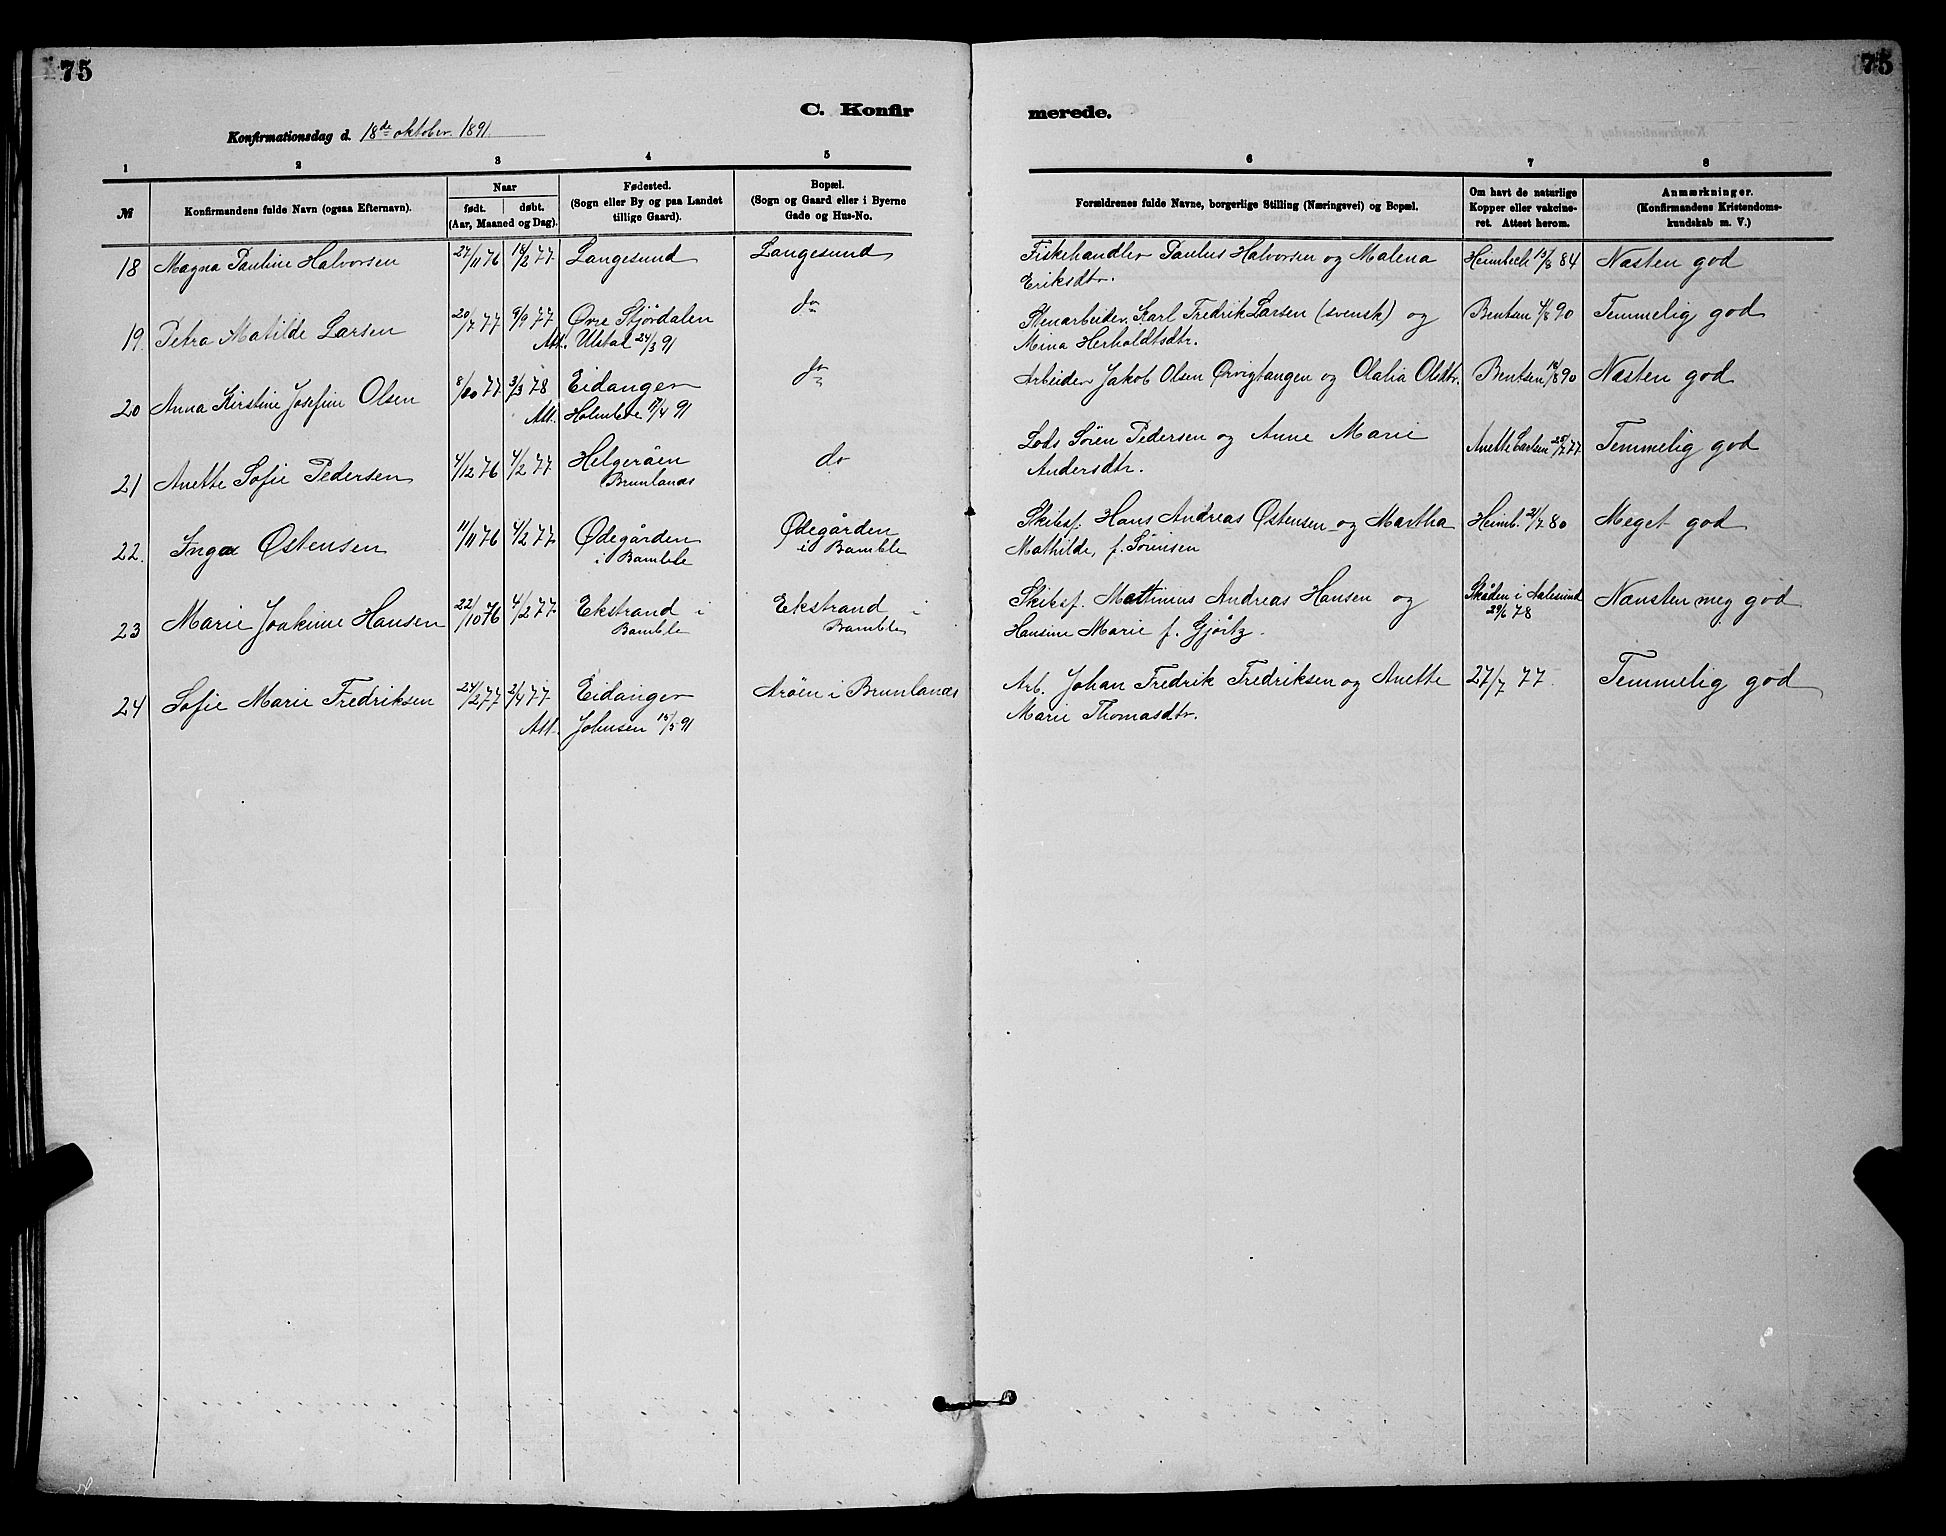 75
75
C. Konfir
merede.
Konfirmationsdag d. 18de oktober 1891.
1 2 3 4 5 6 7 8
№
Konfirmandens fulde Navn (ogsaa Efternavn).
Naar
født. døbt.
(Aar, Maaned og Dag).
Fødested.
(Sogn eller By og paa Landet
tillige Gaard).
Bopæl.
(Sogn og Gaard eller i Byerne
Gade og Hus-No.
Forældrenes fulde Navne, borgerlige Stilling (Næringsvei) og Bopæl.
Om havt de naturlige
Kopper eller vakcine-
ret. Attest herom.
Anmærkninger.
(Konfirmandens Kristendoms-
kundskab m. V.)
18 Magna Pauline Halvorsen 27/11 76 18/2 77 Langesund Langesund Fiskehandler Paulus Halvorsen og Malena Heimbeck 13/8 84 Næsten god
Eriksdtr.
19. Petra Matilde Larsen 20/7 77 9/9 77 Øvre Stjördalen do Stenarbeider Karl Fredrik Larsen (svensk) og Bentsen 4/8 90 Temmelig god
Att. Ulstad 24/3 91 Mina Herholdtsdtr.
20 Anna Kirstine Josefine Olsen 8/10 77 3/3 78 Eidanger do Arbeider Jakob Olsen Ørvigtangen og Olalia Olsdtr. Bentsen 18/8 90 Næsten god
Att. Holmboe 17/4 91
21 Anette Sofie Pedersen 4/12 76 4/2 77 Helgeröen do Lods Sören Pedersen og Anne Marie Anette Larsen 25/7 77 Temmelig god
Brunlanæs Andersdtr.
22. Inga Østensen 11/11 76 4/2 77 Ødegården Ødegården Skibsf. Hans Andreas Østensen og Martha Heimb. 21/7 80 Meget god
i Bamble i Bamble Mathilde, f. Sörensen
23 Marie Joakime Hansen 22/10 76 4/2 77 Ekstrand i Ekstrand i Skibsf. Mathinus Andreas Hansen og Skåden i Aalesund Næsten meg god
Bamble Bamble Hansine Marie f. Gjörtz. 29/6 78
24 Sofie Marie Fredriksen 24/2 77 2/4 77 Eidanger Aröen i Brunlanæs Arb. Johan Fredrik Fredriksen og Anette 27/7 77 Temmelig god
Att. Johnsen 15/5 91 Marie Thomasdtr.